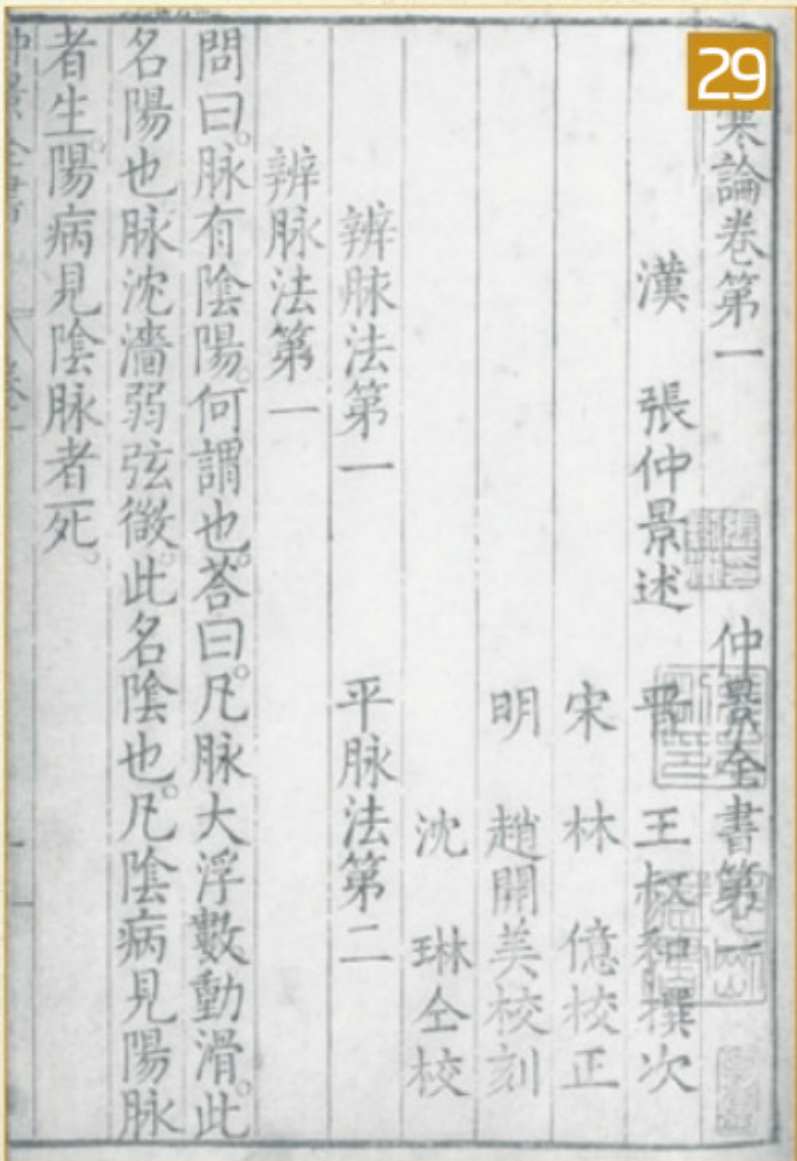 29
寒論卷第一 仲景全書第一
漢 張仲景述 晉 王叔和撰次
宋 林 億校正
明 趙開美校刻
沈 琳仝校
辨脉法第一 平脉法第二
辨脉法第一
問曰。脉有陰陽。何謂也。荅曰。凡脉大浮數動滑。此
名陽也。脉沈濇弱弦微。此名陰也。凡陰病見陽脉
者生。陽病見陰脉者死。
仲景全書 卷一